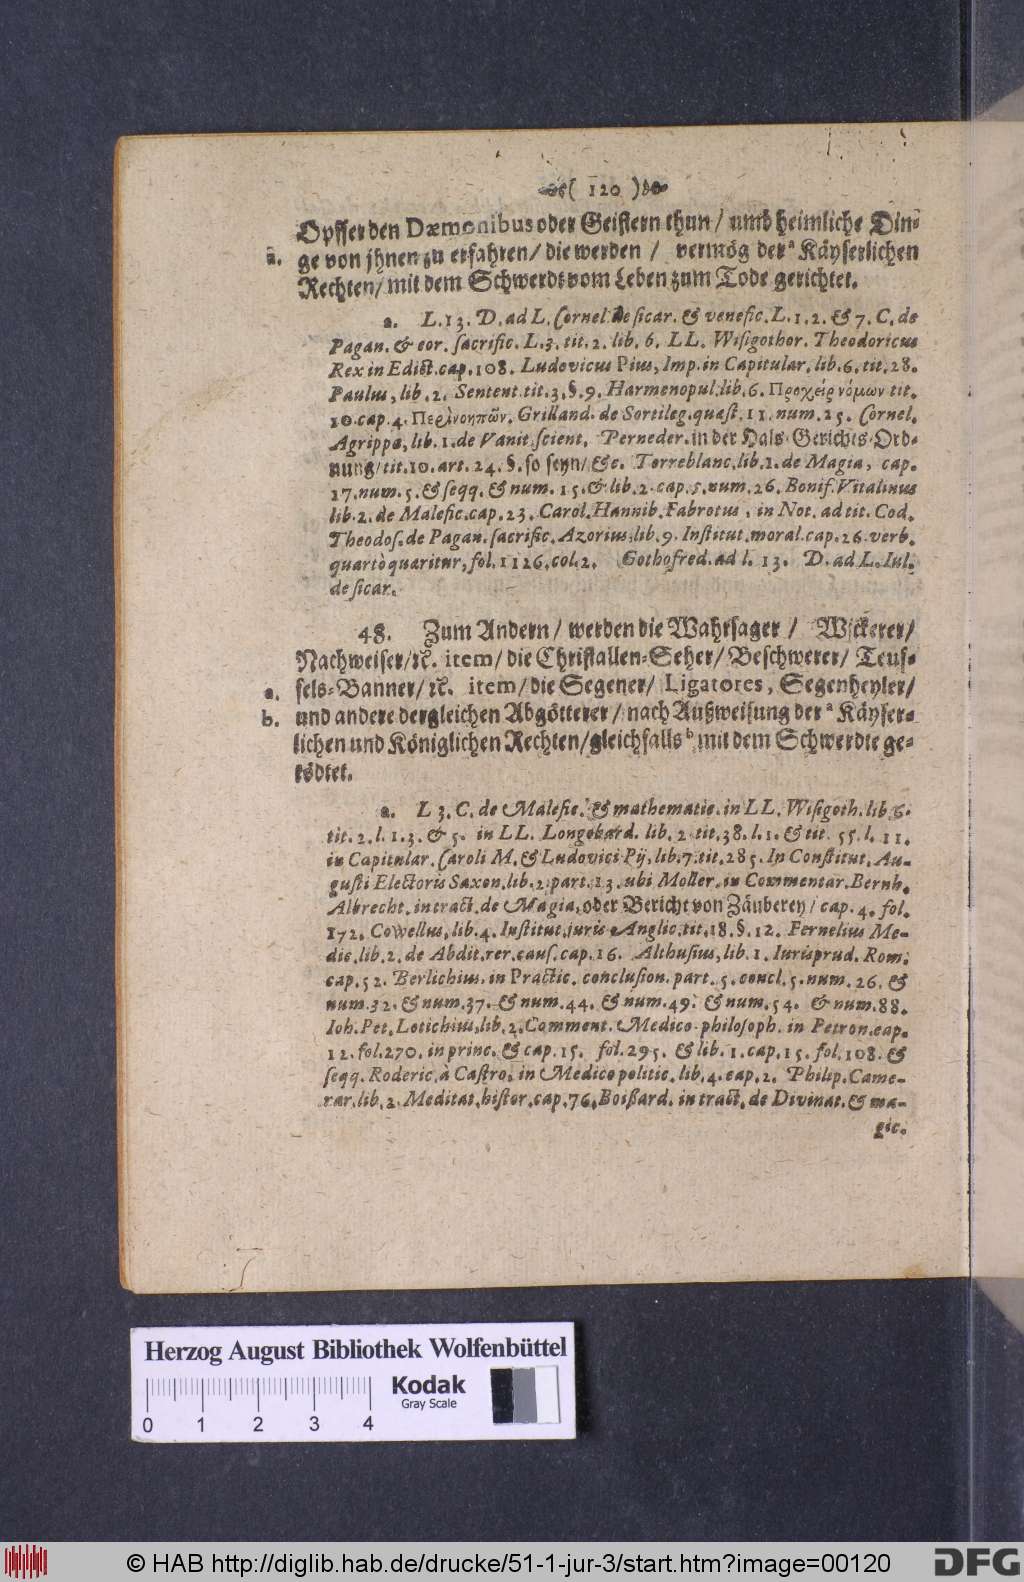 ( 120 )
Opffer den Dæmonibus oder Geistern thun / umb heimliche Din-
a. ge von jhnen zu erfahren / die werden / vermög der ᵃ Käyserlichen
Rechten / mit dem Schwerdt vom Leben zum Tode gerichtet.
a. L. 13. D. ad L. Cornel. de sicar. & venefic. L. 1. 2. & 7. C. de
Pagan. & eor. sacrific. L. 3. tit. 2. lib. 6. LL. Wisigothor. Theodoricus
Rex in Edict. cap. 108. Ludovicus Pius, Imp. in Capitular. lib. 6. tit. 28.
Paulus, lib. 2. Sentent. tit. 3. §. 9. Harmenopul. lib. 6. Προχείρ νόμων tit.
10. cap. 4. Grilland. de Sortileg. quæst. 11. num. 25. Cornel.
Agrippa, lib. 1. de Vanit. scient. Perneder. in der Hals-Gerichts-Ord-
nung / tit. 10. art. 24. §. so seyn / &c. Torreblanc. lib. 2. de Magia, cap.
17. num. 5. & seqq. & num. 15. & lib. 2. cap. 5. num. 26. Bonif. Vitalinus
lib. 2. de Malefic. cap. 23. Carol. Hannib. Fabrotus, in Not. ad tit. Cod.
Theodos. de Pagan. sacrific. Azorius, lib. 9. Institut. moral. cap. 26. verb.
quartò quæritur, fol. 1126. col. 2. Gothofred. ad l. 13. D. ad L. Iul.
de sicar.
48. Zum Andern / werden die Wahrsager / Wickerer /
Nachweiser / ꝛc. item / die Christallen-Seher / Beschwerer / Teuf-
a. fels-Banner / ꝛc. item / die Segener / Ligatores, Segenheyler /
b. und andere dergleichen Abgötterer / nach Außweisung der ᵃ Käyser-
lichen und Königlichen Rechten / gleichfalls ᵇ mit dem Schwerdte ge-
tödtet.
a. L 3. C. de Malefic. & mathematic. in LL. Wisigoth. lib. 6.
tit. 2. l. 1. 3. & 5. in LL. Longobard. lib. 2. tit. 38. l. 1. & tit. 55. l. 11.
in Capitular. Caroli M. & Ludovici Pij, lib. 7. tit. 285. In Constitut. Au-
gusti Electoris Saxon. lib. 2. part. 13. ubi Moller. in Commentar. Bernh.
Albrecht. in tract. de Magia, oder Bericht von Zäuberey / cap. 4. fol.
172. Cowellus, lib. 4. Institut. juris Anglic. tit. 18. §. 12. Fernelius Me-
dic. lib. 2. de Abdit. rer. caus. cap. 16. Althusius, lib. 1. Iurisprud. Rom.
cap. 52. Berlichius. in Practic. conclusion. part. 5. concl. 5. num. 26. &
num. 32. & num. 37. & num. 44. & num. 49. & num. 54. & num. 88.
Ioh. Pet. Lotichius, lib. 2. Comment. Medico-philosoph. in Petron. cap.
12. fol. 270. in princ. & cap. 15. fol. 295. & lib. 1. cap. 15. fol. 108. &
seqq. Roderic. à Castro, in Medico politic. lib. 4. cap. 2. Philip. Came-
rar. lib. 2. Meditat. histor. cap. 76. Boißard. in tract. de Divinat. & ma-
gic.
Herzog August Bibliothek Wolfenbüttel
Kodak
Gray Scale
0 1 2 3 4
© HAB http://diglib.hab.de/drucke/51-1-jur-3/start.htm?image=00120
DFG